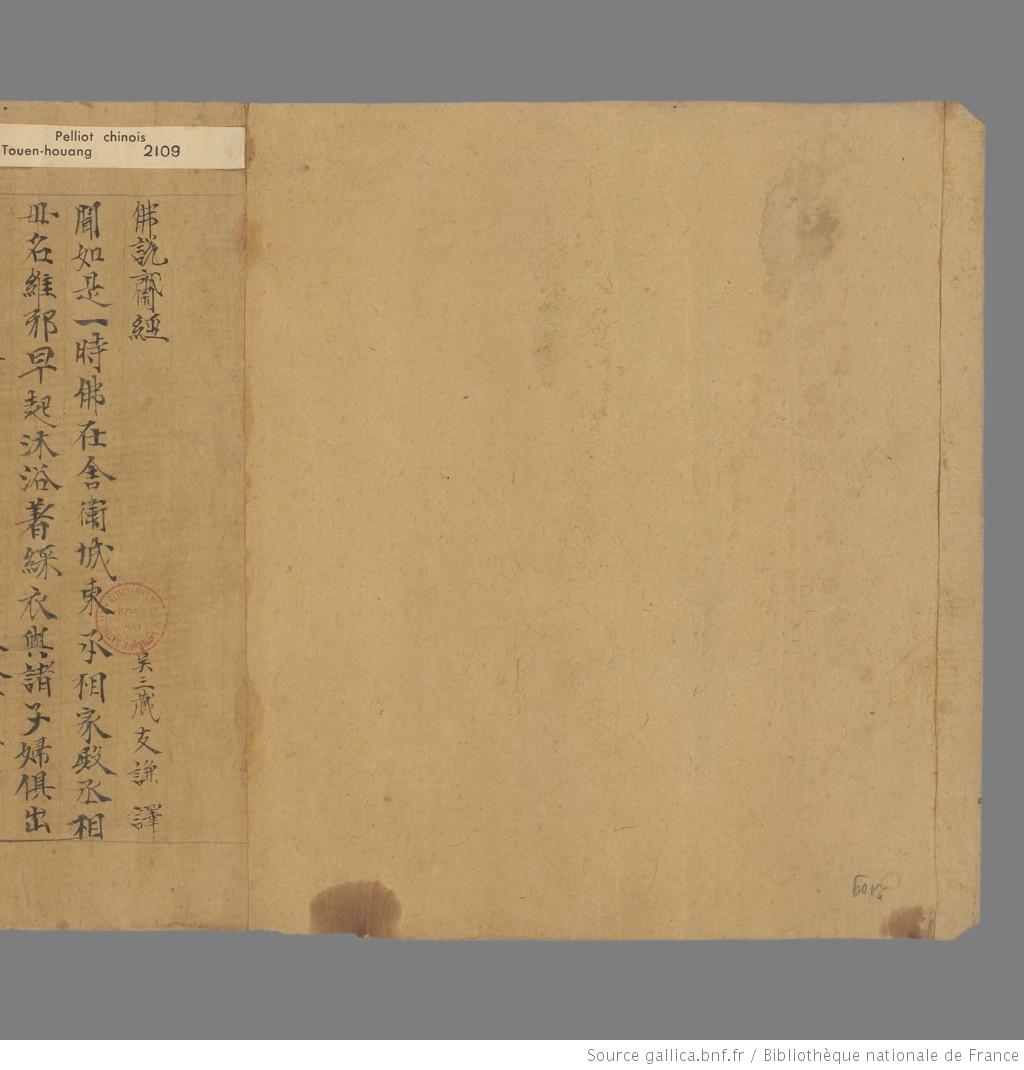 Pelliot chinois
Touen-houang 2109
佛說齋經
吳三藏支謙譯
聞如是一時佛在舍衛城東丞相家殿丞相
母名維耶早起沐浴著綵衣與諸子婦俱出
2109
Source gallica.bnf.fr / Bibliothèque nationale de France